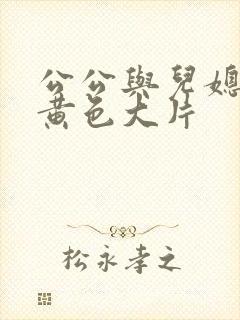 公公與兒媳
黃色大片
松永孝之